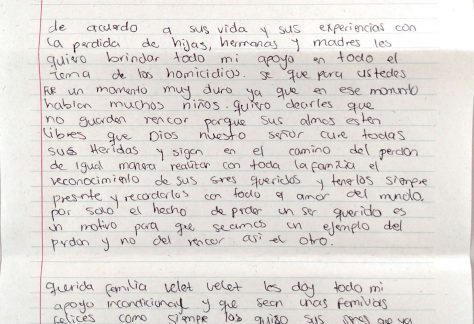 de acuerdo a sus vida y sus experiencias con
la perdida de hijas, hermanas y madres les
quiero brindar todo mi apoyo en todo el
tema de los homicidios. se que para ustedes
fue un momento muy duro ya que en ese momento
habian muchos niños. quiero decirles que
no guarden rencor porque sus almas esten
libres que Dios nuesto señor cure todas
sus Heridas y sigan en el camino del perdon
de igual manera realizar con toda la familia el
reconocimiento de sus sres queridos y tenerlos siempre
presnte y recordarlos con todo el amor del mundo,
por solo el hecho de prder un ser querido es
un motivo para que seamos un ejemplo del
prdon y no del rencor asi el otro.
querida familia velet velet les doy todo mi
apoyo incondicional y que sean unas
felices como siempre los quiso sus sres que ya